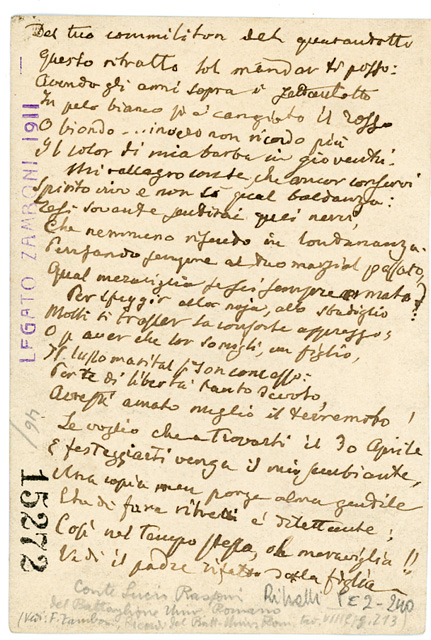 Del tuo commiliton del quarantotto
Questo ritratto sol mandar ti posso:
Avendo gli anni sopra i settantotto
In pelo bianco s'è cangiato il rosso
O biondo... invero non ricordo più
Il color di mia barba in gioventù.
Mi rallegro conte, che ancor conservi
Spirito vivo e non so qual baldanza:
sovente quei nervi
Che nemmeno rifuggo in lontananza.
Pensando sempre al tuo marzial passato,
Qual meraviglia se sei sempre armato?
Per fuggir allor noja, allo sbadiglio
Molti ti trasser la consorte appresso;
O per aver che lor somigli, un figlio,
Il lusso marital s'è concesso:
Per te di libertà tanto devoto
Avresti amato meglio il terremoto!
Le voglio che a trovarti il 30 Aprile
E festeggiarti venga il mio sembiante,
Una copia men, porge alma gentile
Che di fare ritratti è dilettante;
Così nel tempo stesso, oh meraviglia!!
Vedi il padre della figlia
Conte Lucio Rasponi
del Battaglione Univ. Romano
(Vedi: F. Zamboni, Ricordi del Batt. Univ. Rom. p. 213)
PE2-240
LEGATO ZAMBONI 1911
46/
15272